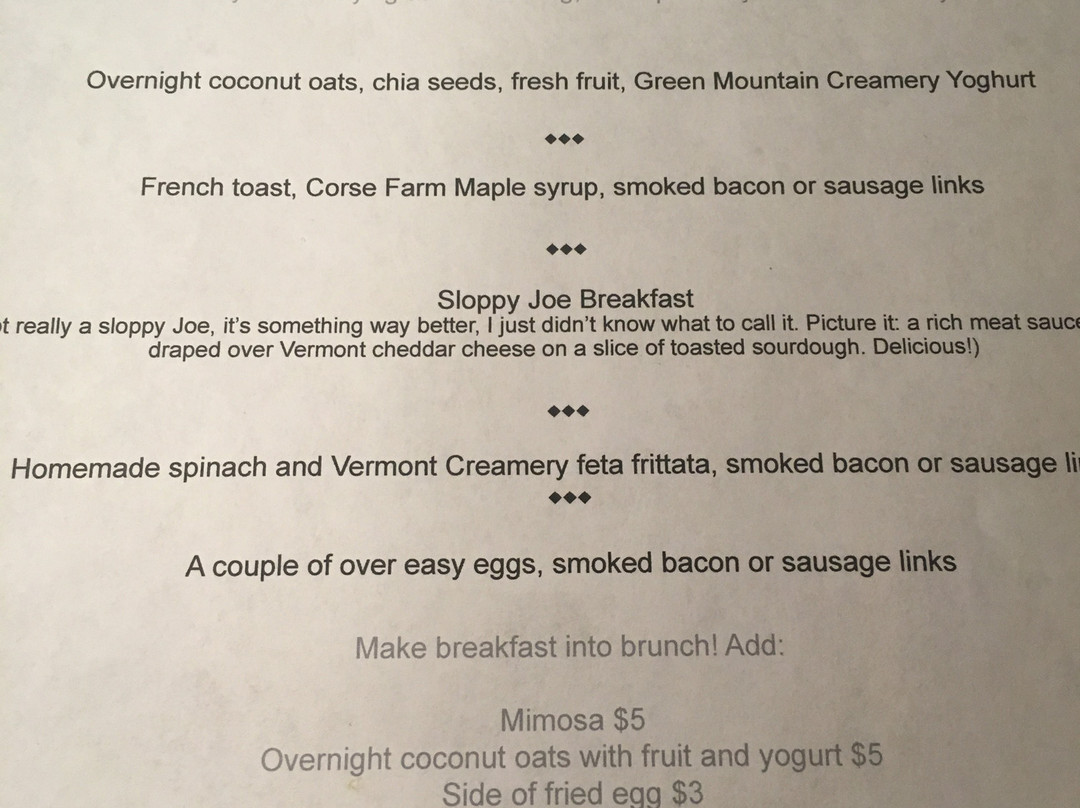 Overnight coconut oats, chia seeds, fresh fruit, Green Mountain Creamery Yoghurt
French toast, Corse Farm Maple syrup, smoked bacon or sausage links
Sloppy Joe Breakfast
really a sloppy Joe, it's something way better, I just didn't know what to call it. Picture it: a rich meat sauce
draped over Vermont cheddar cheese on a slice of toasted sourdough. Delicious!)
Homemade spinach and Vermont Creamery feta frittata, smoked bacon or sausage
A couple of over easy eggs, smoked bacon or sausage links
Make breakfast into brunch! Add:
Mimosa $5
Overnight coconut oats with fruit and yogurt $5
Side of fried egg $3